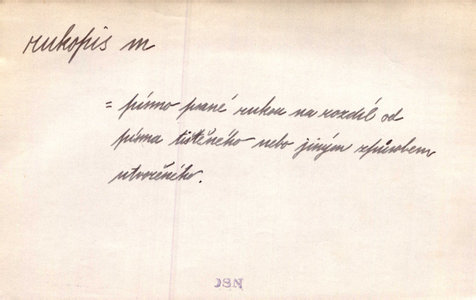 rukopis m
= písmo psané rukou na rozdíl od
písma tištěného nebo jiným způsobem
utvořeného.
DSN